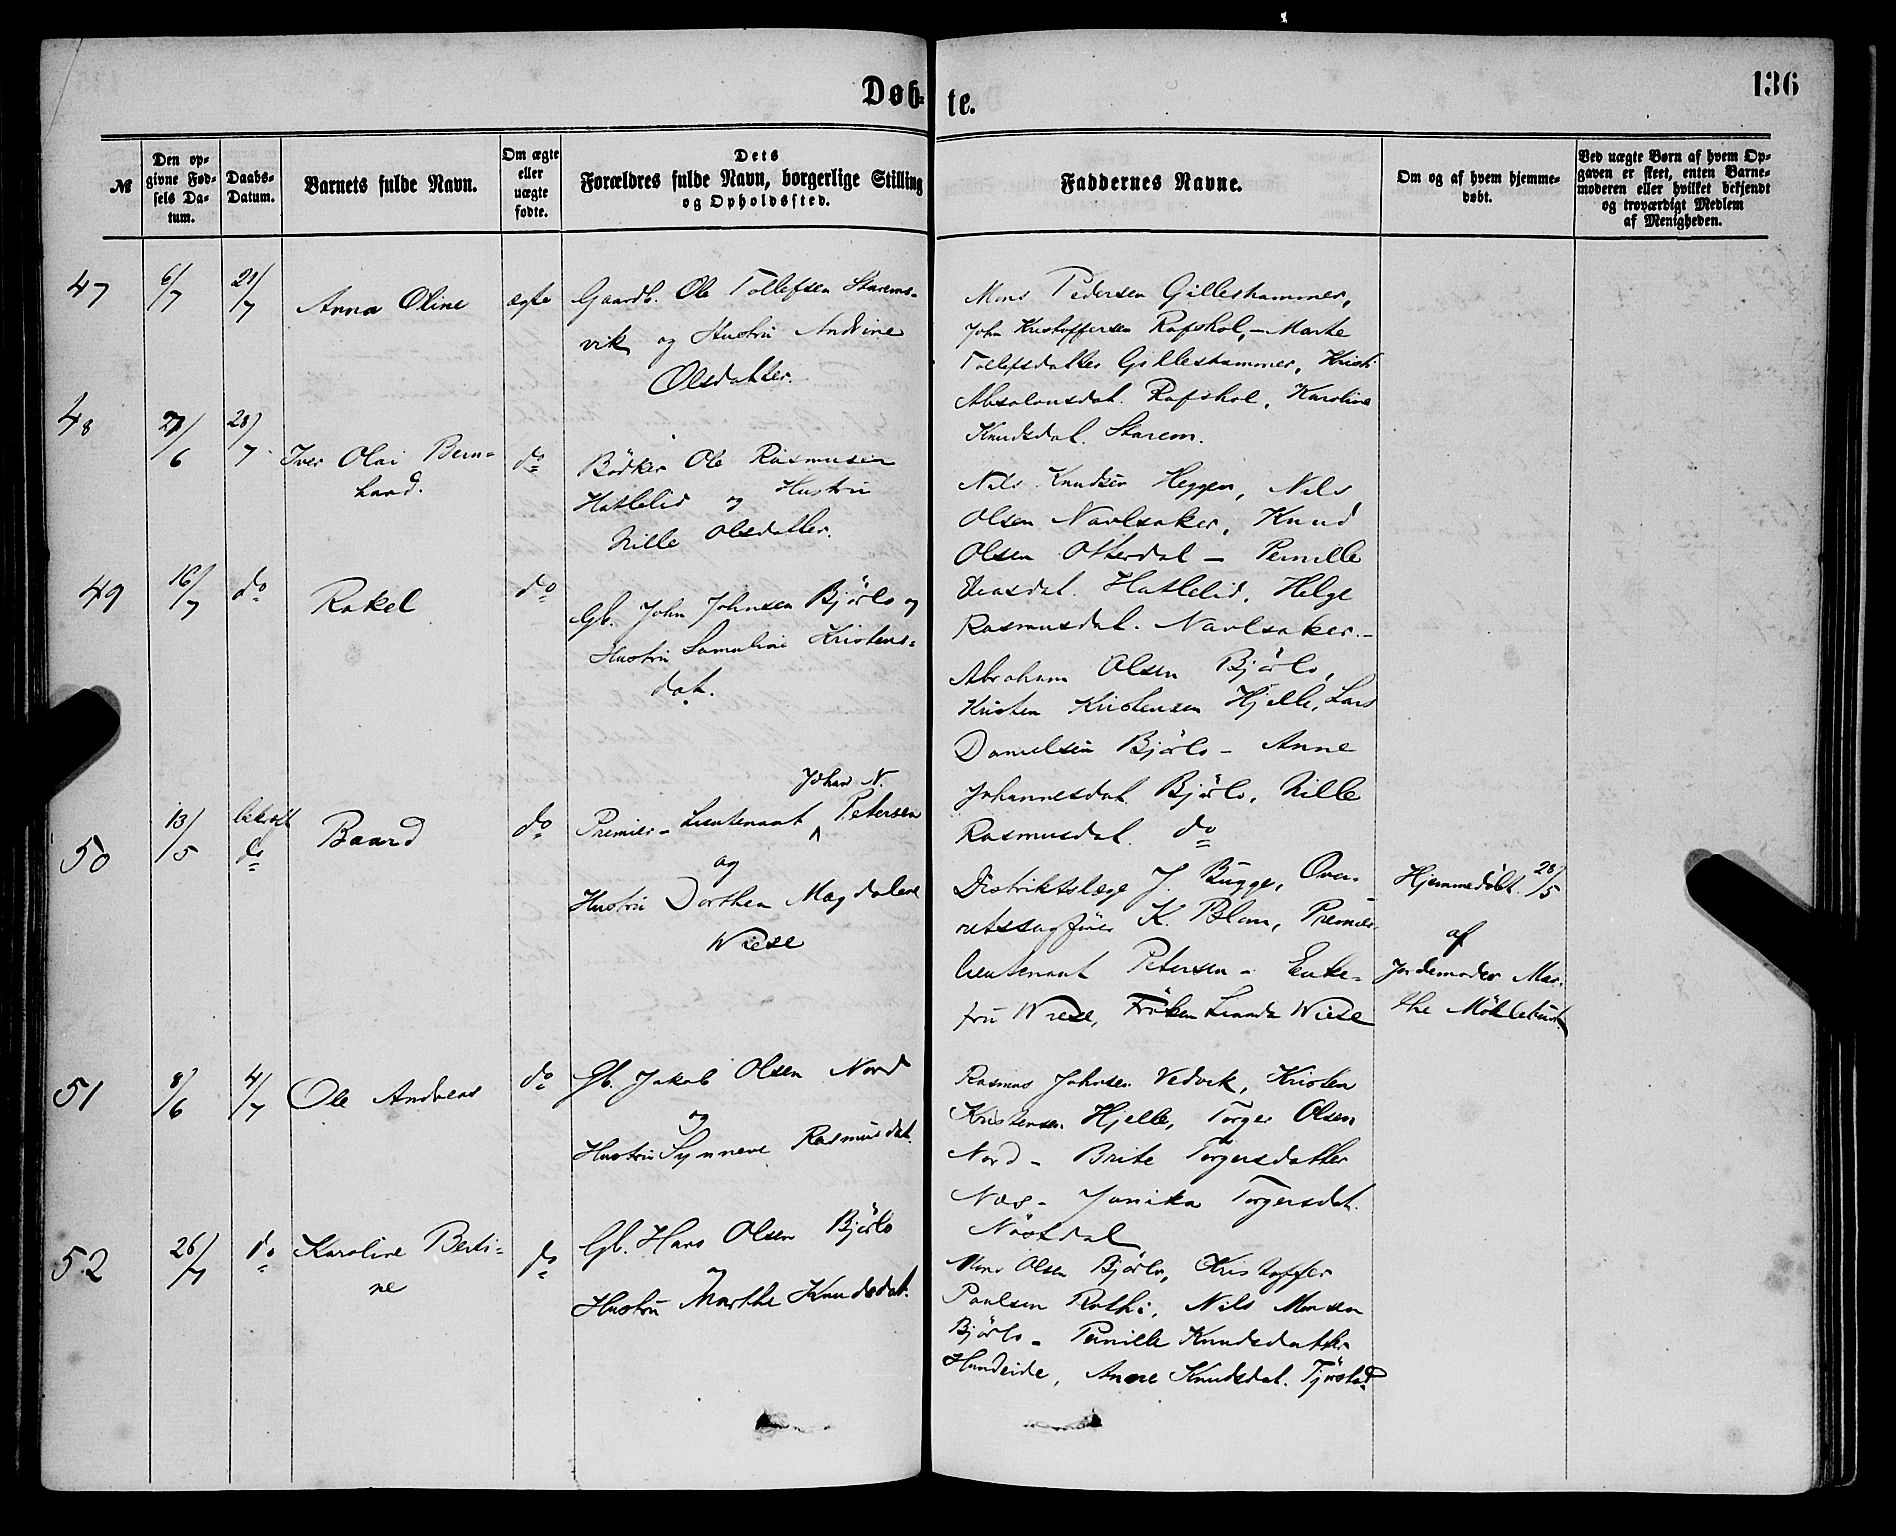 Døb-
te.
136
№
Den op-
givne Fød-
sels Da-
tum.
Daabs-
Datum.
Barnets fulde Navn.
Om ægte
eller
uægte
fødte.
Dets
Forældres fulde Navn, borgerlige Stilling
og Opholdssted.
Faddernes Navne.
Om og af hvem hjemme-
døbt.
Ved uægte Børn af hvem Op-
gaven er skeet, enten Barne-
moderen eller hvilket bekjendt
og troværdigt Medlem
af Menigheden.
47
6/7
21/7
Anna Oline
ægte
Gaardb. Ole Tollefsen Starems-
vik og Hustru Andrine
Olsdatter.
Mons Pedersen Gilleshammer,
John Kristoffersen Rafshol, - Marte
Tollefsdatter Gilleshammer, Kristi
Absalonsdat. Rafshol, Karoline
Knudsdat. Starem.
48
27/6
28/7
Iver Olai Bern-
hard.
do
Bödker Ole Rasmusen
Hatlelid og Hustru
Nille Olsdatter.
Nils Knudsen Heggen, Nils
Olsen Navlsaker, Knud
Olsen Otterdal - Pernille
Elvasdat. Hatlelid, Helge
Rasmusdat. Navlsaker. -
49
16/7
do
Rakel
do
Gb. John Johnsen Björlo og
Hustru Samuline Kristens-
dat.
Abraham Olsen Björlo,
Kristen Kristensen Hjelle, Lars
Danielsen Björlo - Anne
Johannesdat. Björlo, Nille
Rasmusdat. do
50
13/5
do
Baard
do
Johan N.
Premier-Lieutenant ^ Petersen
og
Hustru Dorthea Magdalene
Wiese
Distriktslæge J. Bugge, Over-
retssagförer K. Blom, Premier-
lieutenant Petersen - Enke-
fru Wiese, Fröken Wiese
Hjemmedöbt 28/5
af
Jordemoder Mar-
the
51
8/6
4/7
Ole Andreas
do
Gb. Jakob Olsen Nord
og
Hustru Synneve Rasmusdat.
Rasmus Johnsen Vedvik, Kristen
Kristensen Hjelle, Torger Olsen
Nord - Brite Torgersdatter
Næs - Janika Torgersdat.
Nöstdal
52
26/7
do
Karoline Berti-
ne
do
Gb. Hans Olsen Björlo
og
Hustru Marthe Knudsdat.
Mons Olsen Björlo, Kristoffer
Paulsen Rathi, Nils Monsen
Björlo - Pernille Knudsdatter
Hundeide, Anne Knudsdat. Tjöstad